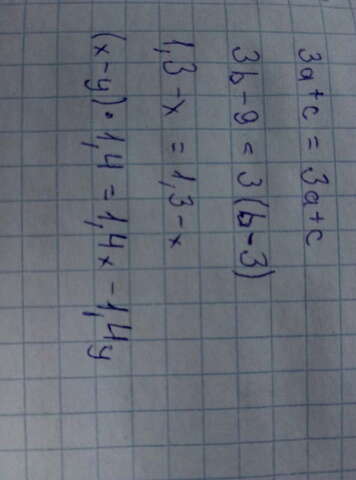 3a+c = 3a+c
3b-9 = 3(b-3)
1,3-x = 1,3-x
(x-y)·1,4 = 1,4x-1,4y